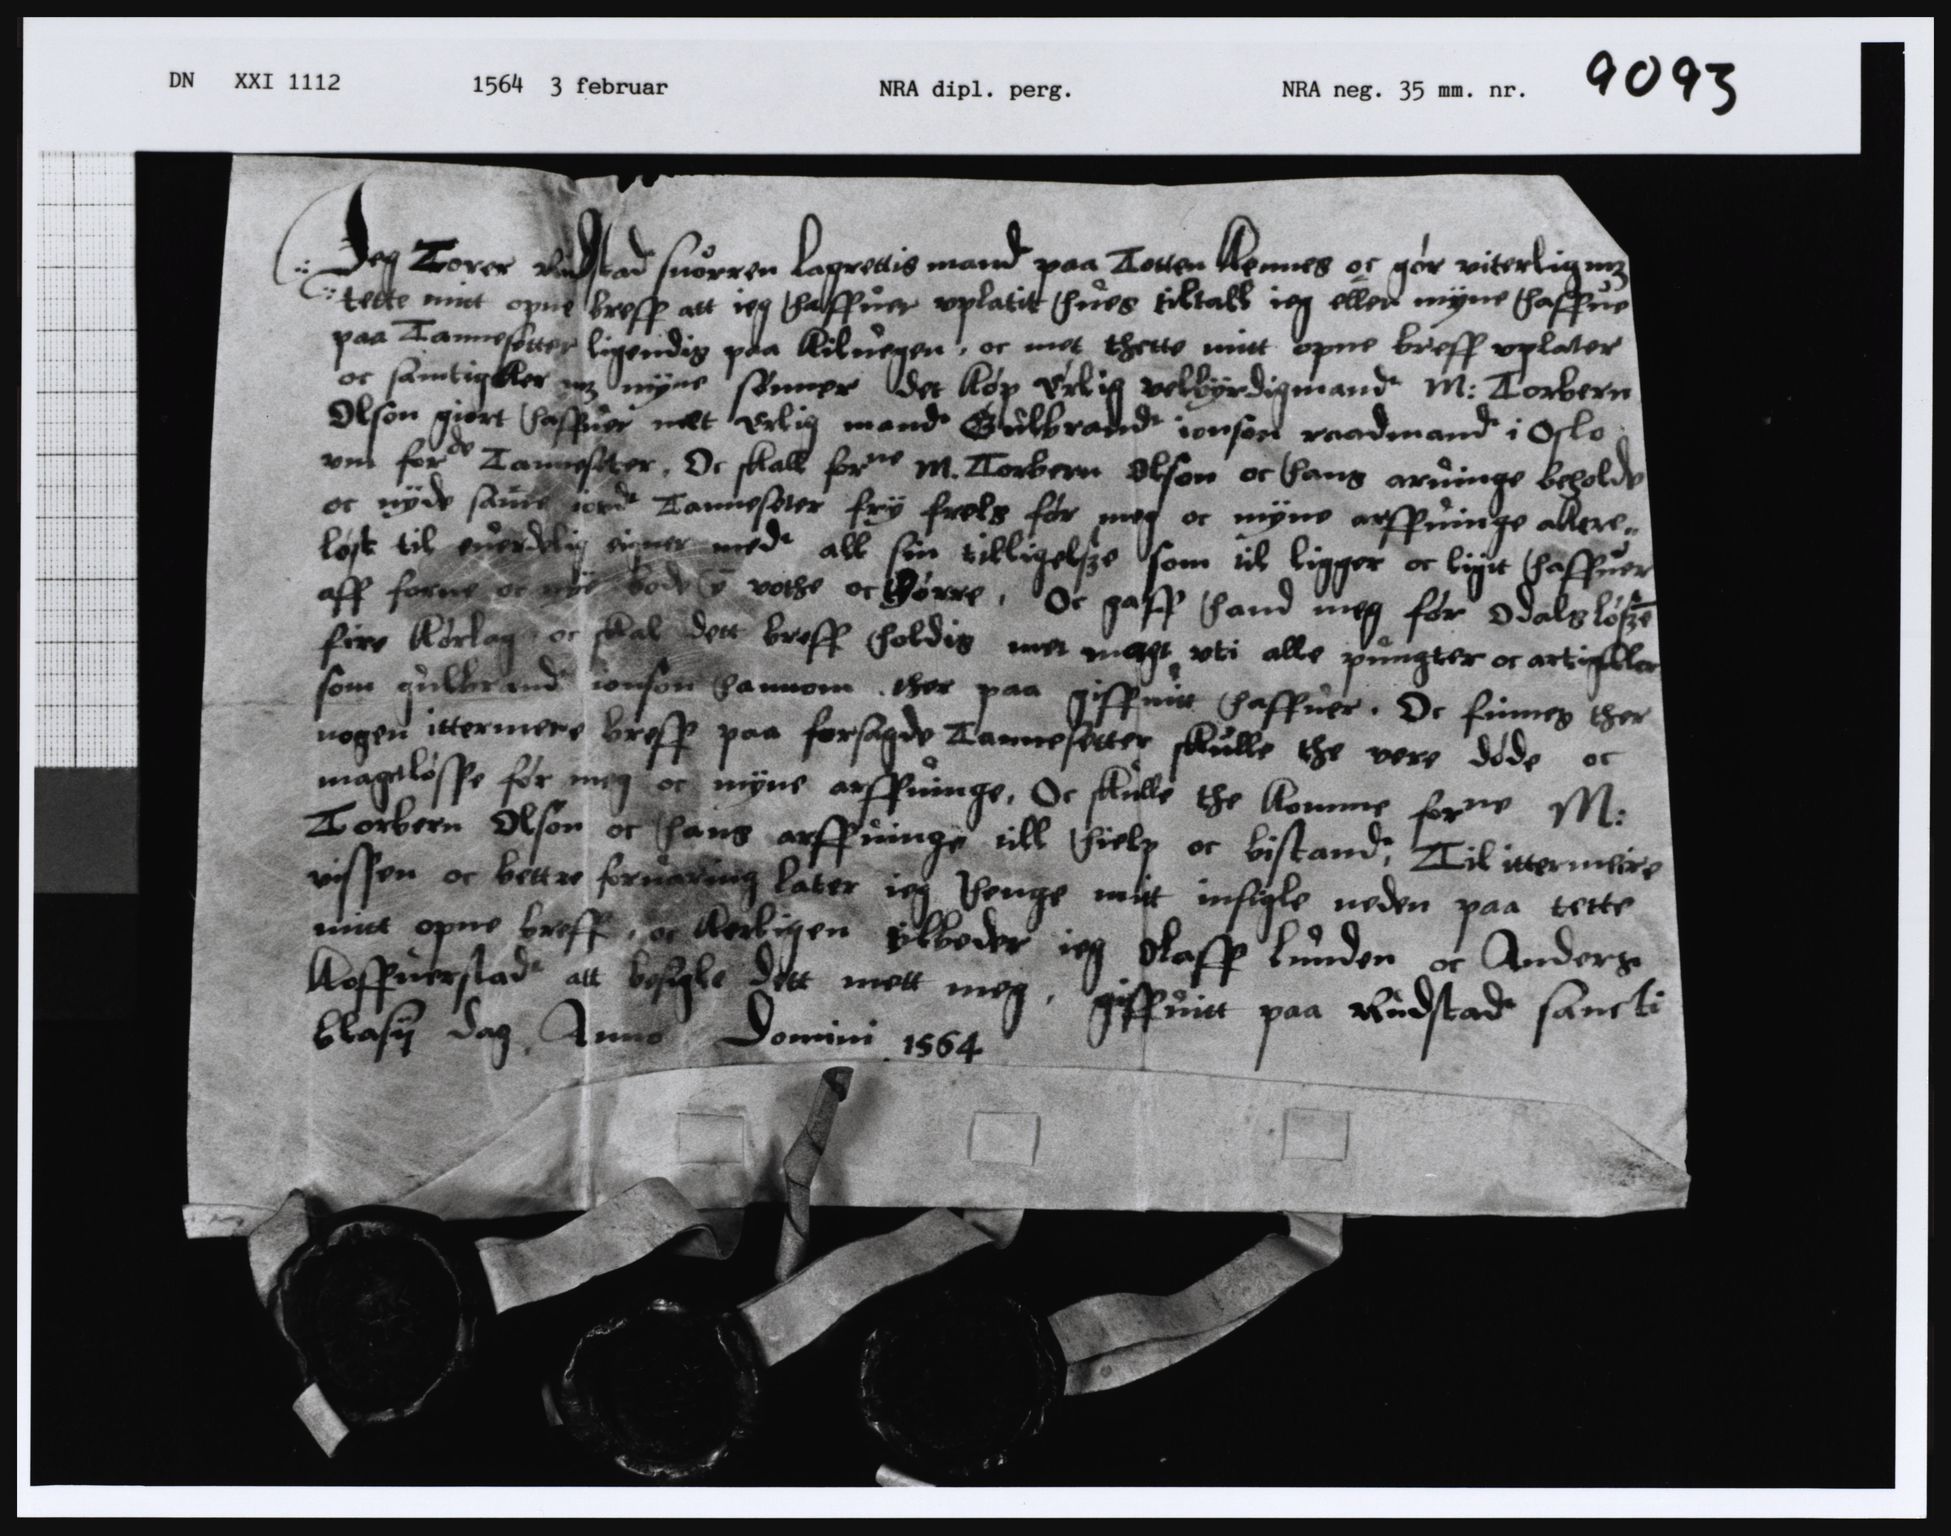 DN XXI 1112 1564 3 februar NRA dipl. perg. NRA neg. 35 mm. nr. 9093
Jeg Torer Rudstad suoren lagrettis mand paa Totten Kennes oc gør viterlig mz
tette mitt opne breff att ieg haffuer vplatit hues tiltall ieg eller myne haffue
paa Tanneseter ligendis paa Kiluegen, oc met thette mitt opne breff vplater
oc samtigker mz myne sønner det køp Erlig velbyrdig mand M: Torbern
Olson giort haffuer mett Erlig mand Gulbrand ionson raadmand i Oslo
vm forde Tanneseter. Oc skall forne M. Torbern Olson oc hans aruinge beholde
oc nyde same iord Tanneseter fry frels før meg oc myne arffuinge akere„
løst til euerdelig eigner med all sin tilligelsze som til ligger oc ligit haffuer
aff forne oc nye bode i vothe oc tørre, Oc gaff hand meg før Odals løsze
fire kørlag, oc skal dett breff holdis met magt vti alle pungter oc artigkler
som gulbrand ionson hannom ther paa giffuitt haffuer. Oc finnes ther
nogen ittermere breff paa forsagde Tannesetter skulle the vere døde oc
magtløsse før meg oc myne arffuinge, Oc skulle the komme forne M:
Torbern Olson oc hans arffuinge till hielp oc bistand, Til ittermeire
vissen oc bettre foruaring later ieg henge mitt insigle neden paa tette
mitt opne breff, oc kerligen tilbeder ieg Olaff lunden oc Anders
Koffuerstad att besigle dett mett meg, giffuitt paa Rudstad sancti
blasij dag, Anno Domini 1564